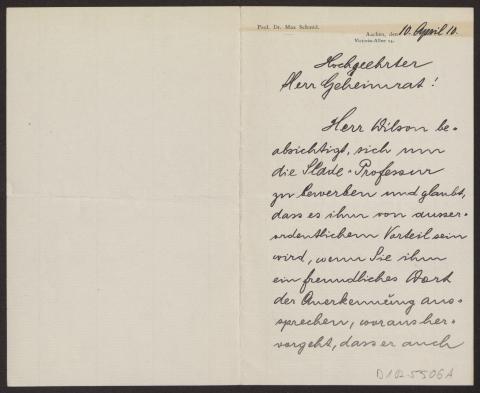 Prof. Dr. Max Schmid.
Aachen, den 10. April 10.
Victoria-Allee 14.
Hochgeehrter
Herr Geheimrat!
Herr Wilson be-
absichtigt, sich um
die Slade-Professur
zu bewerben und glaubt,
dass es ihm von ausser-
ordentlichem Vorteil sein
wird, wenn Sie ihm
ein freundliches Wort
der Anerkennŭng aus-
sprechen, woraus her-
vorgeht, dass er auch
D 102-5506A